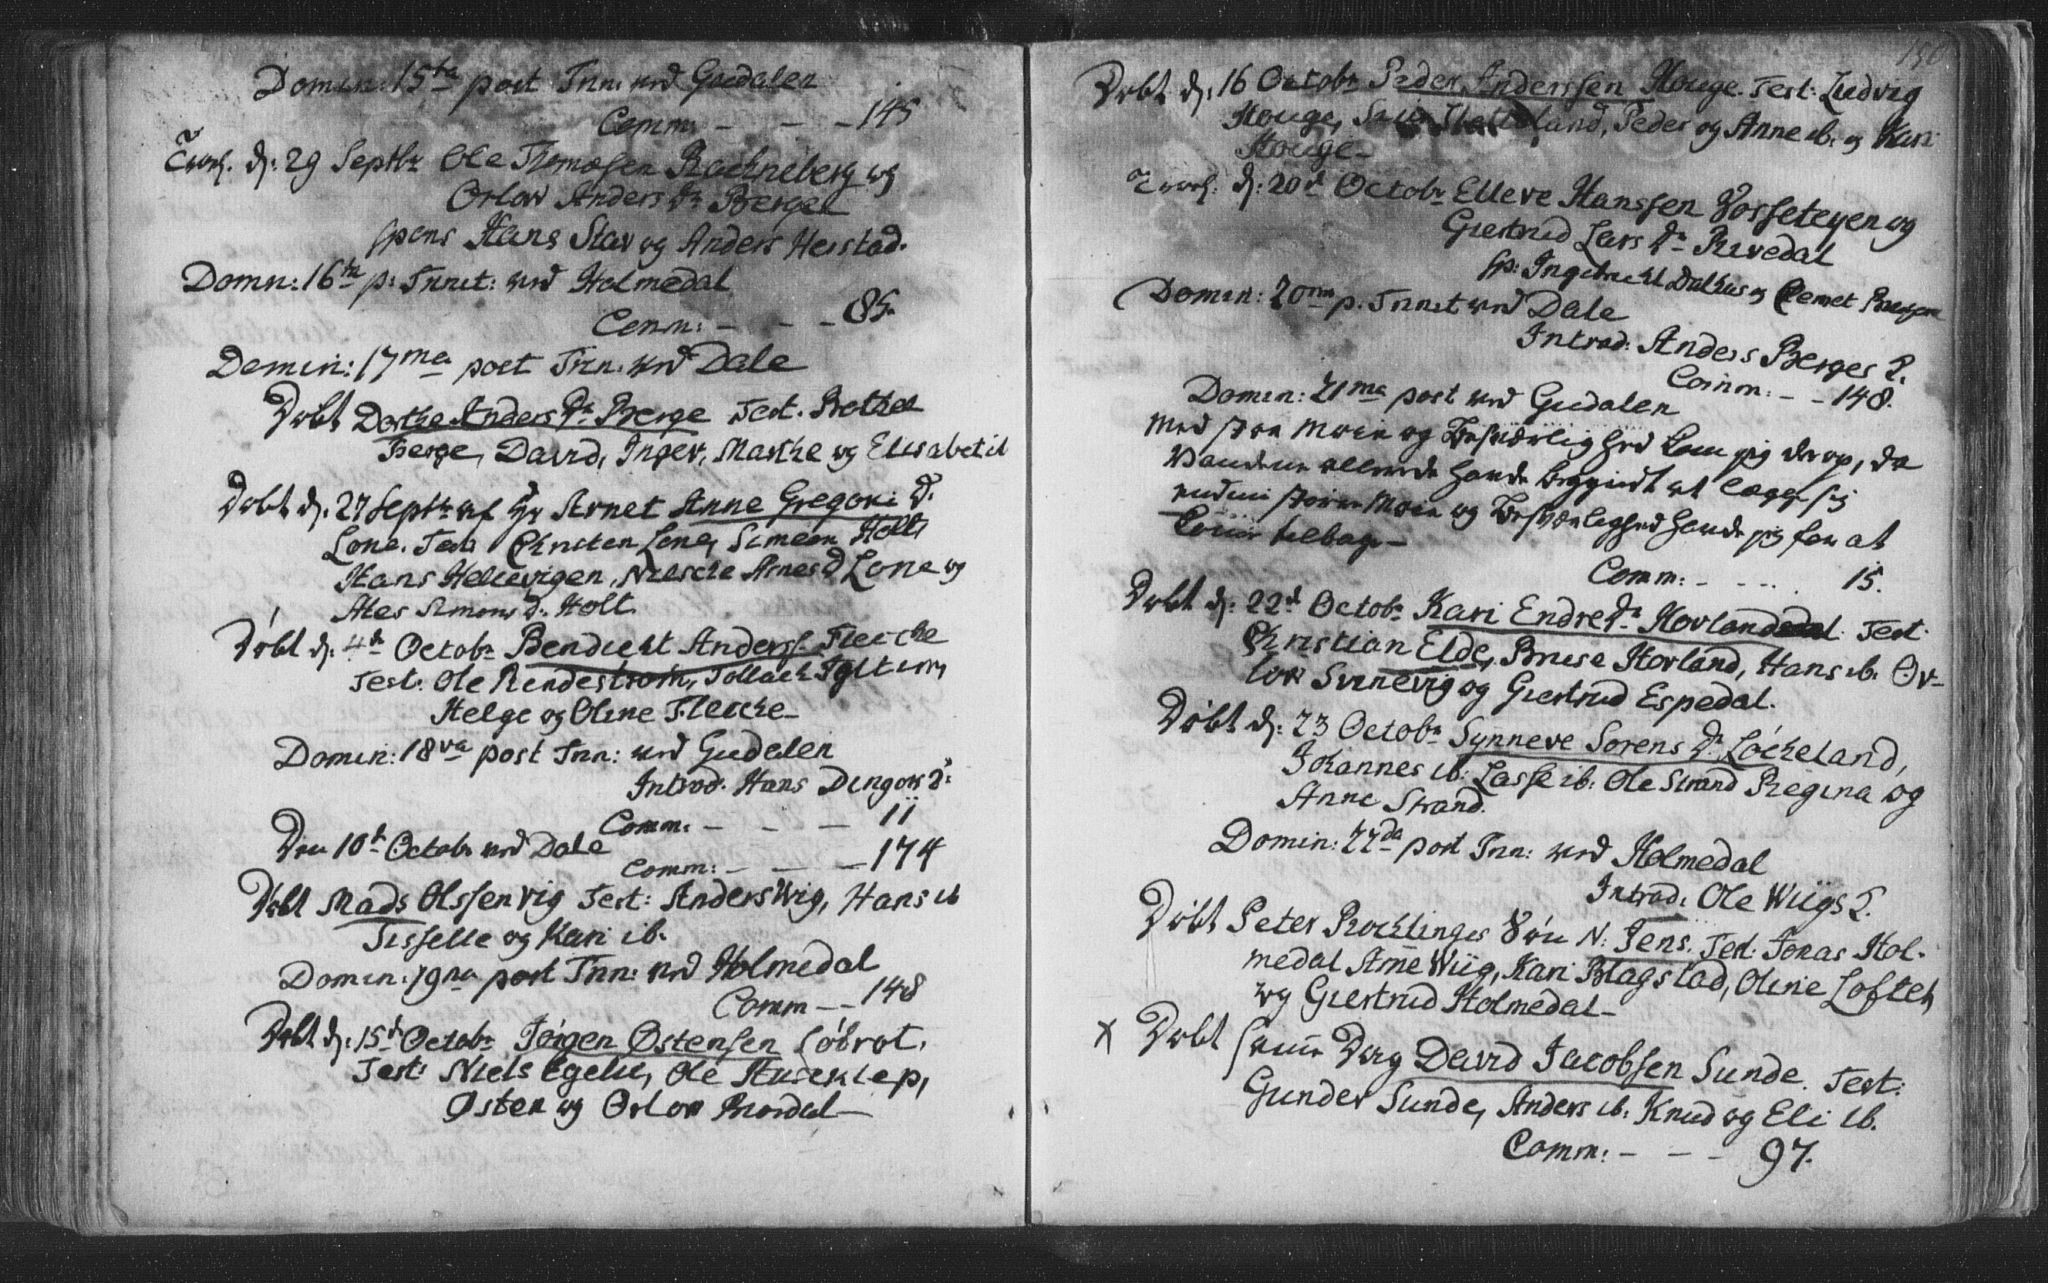 Domin: 15ta post Trin: ved Gudalen
Comm: - - - 145
Trol. d: 29 Septbr Ole Thomæsen Rachneberg og
Orlov Andersdr Berge
spons Hans Slav og Anders Heistad.
Domn: 16ta p: Trinit: ved Holmedal
Comm: - - - 85.
Domin: 17ma post Trin: ved Dale
Døbt Dorthe Andersdr Berge Test. Rethel
Berge, David, Inger, Marthe og Elisabet ib
Døbt d: 27 Septbr af Hr Arnet Anne Gregori D.
Lone. Test: Christen Lone, Simeon Holt
Hans Hellevigen, Nilsche Arnesd Lone og
Ales Simonsd: Holt
Døbt d: 4de Octobr Bendicht Anderss. Fleche
Test: Ole Rendestrøm, Tollach
Helge og Oline Fleche -
Domin: 18va post Trin: ved Gudalen
Introd. Hans Dingors D:
Comm. - - - 11
Den 10de Octobr ved Dale
Comm: - - - 174
Døbt Mads Olssen Vig Test: Anders Wig, Hans ib
Sisselle og Kari ib.
Domin: 19na post Trin: ved Holmedal
Comm - - 148
Døbt d: 15de Octobr Jørgen Østensen Løbrot.
Test: Niels Egelie, Ole Huseklep,
Østen og Orlov Mordal -
150
Døbt d: 16 Octobr Peder Anderssen Houge. Test: Ludvig
Houge, Peder og Anne ib. og Kari
Houge -
Trol: d: 20de Octobr Elleve Hanssen Vosseteyen og
Giertrud Larsdr Rivedal
sp: Ingebricht Dalhus og Clemet
Domin: 20ma p. Trinit ved Dale
Introd: Anders Berges D.
Comm: - - 148.
Domin: 21ma post ved Gudalen
Med stor Moie og Besværlighed kom jeg derop, da
Vandene allerede hande begyndt at læge sig
men større Moie og Besværlighed havde jeg for at
komme tilbage -
Comm: - ... 15.
Døbt d: 22de Octobr Kari Endredr Hovland Test:
Christian Elde, Brise Hovland, Hans ib. Or-
lov Svinevig og Giertrud Espedal.
Døbt d: 23 Octobr Synneve Sorensdr Løcheland,
Johannes ib: Lasse ib: Ole Strand Regina og
Anne Strand.
Domin: 22da post Trin: ved Holmedal
Introd: Ole Wiigs D.
Døbt Peter Rochlinges Søn N: Jens. Test: Jonas Hol-
medal Arne Wiig, Kari Blagstad, Oline Loften
og Giertrud Holmedal -
x Døbt samme Dag David Jacobsen Sunde. Test:
Gunder Sunde, Anders ib: Knud og Eli ib.
Comm: - - - 97.